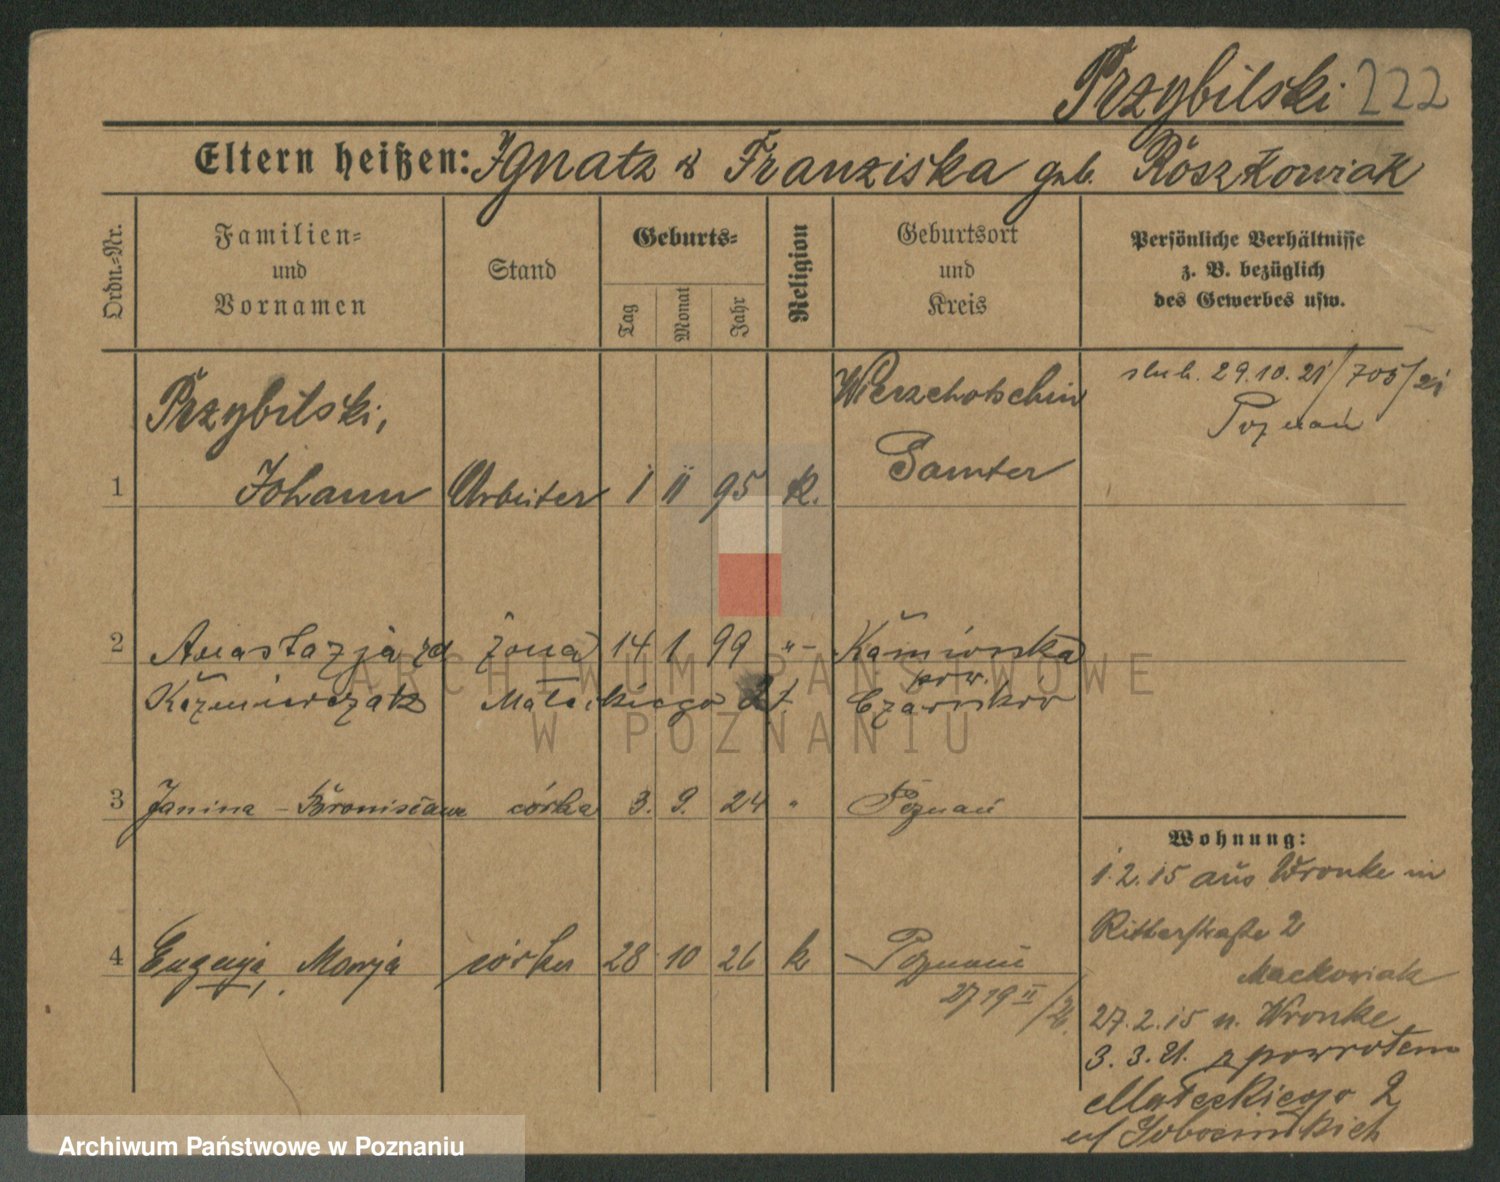 Przybilski 222
Eltern heißen: Ignatz & Franziska geb. Roszkowiak
Ordn.-Nr.
Familien-
und
Vornamen
Stand
Geburts-
Tag
Monat
Jahr
Religion
Geburtsort
und
Kreis
Persönliche Verhältnisse
z. B. bezüglich
des Gewerbes usw.
Przybilski,
1 Johann Arbeiter 1 II 95 k.
Samter
29.10.21/705/21
Poznań
2 Anastazja zd żona 14 1 99 " - Kamionka
Kaźmierczak Małeckiego 21. pow. Czarnków
3 Janina - Bronisława córka 3. 9. 24 " Poznań
4 Eugenja, Marja córka 28 10 26 k Poznań
Wohnung:
1.2.15 aus Wronke in
Ritterstraße 2
Mackowiak
27.2.15 n. Wronke
3.3.21. z powrotem
Małeckiego 2
ARCHIWUM PAŃSTWOWE
W POZNANIU
Archiwum Państwowe w Poznaniu